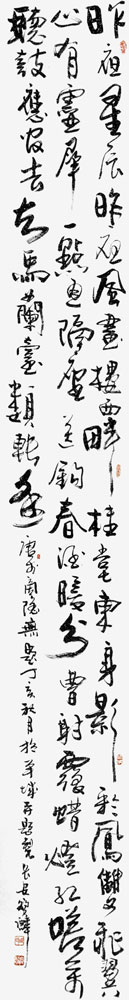 昨夜星辰昨夜風畫樓西畔桂堂東身影彩鳳雙飛翼
心有靈犀一點通隔座送鉤春酒暖分曹射覆蠟燈紅嗟余
聽鼓應官去走馬蘭臺類轉蓬
唐李商隱無題丁亥秋月於羊城